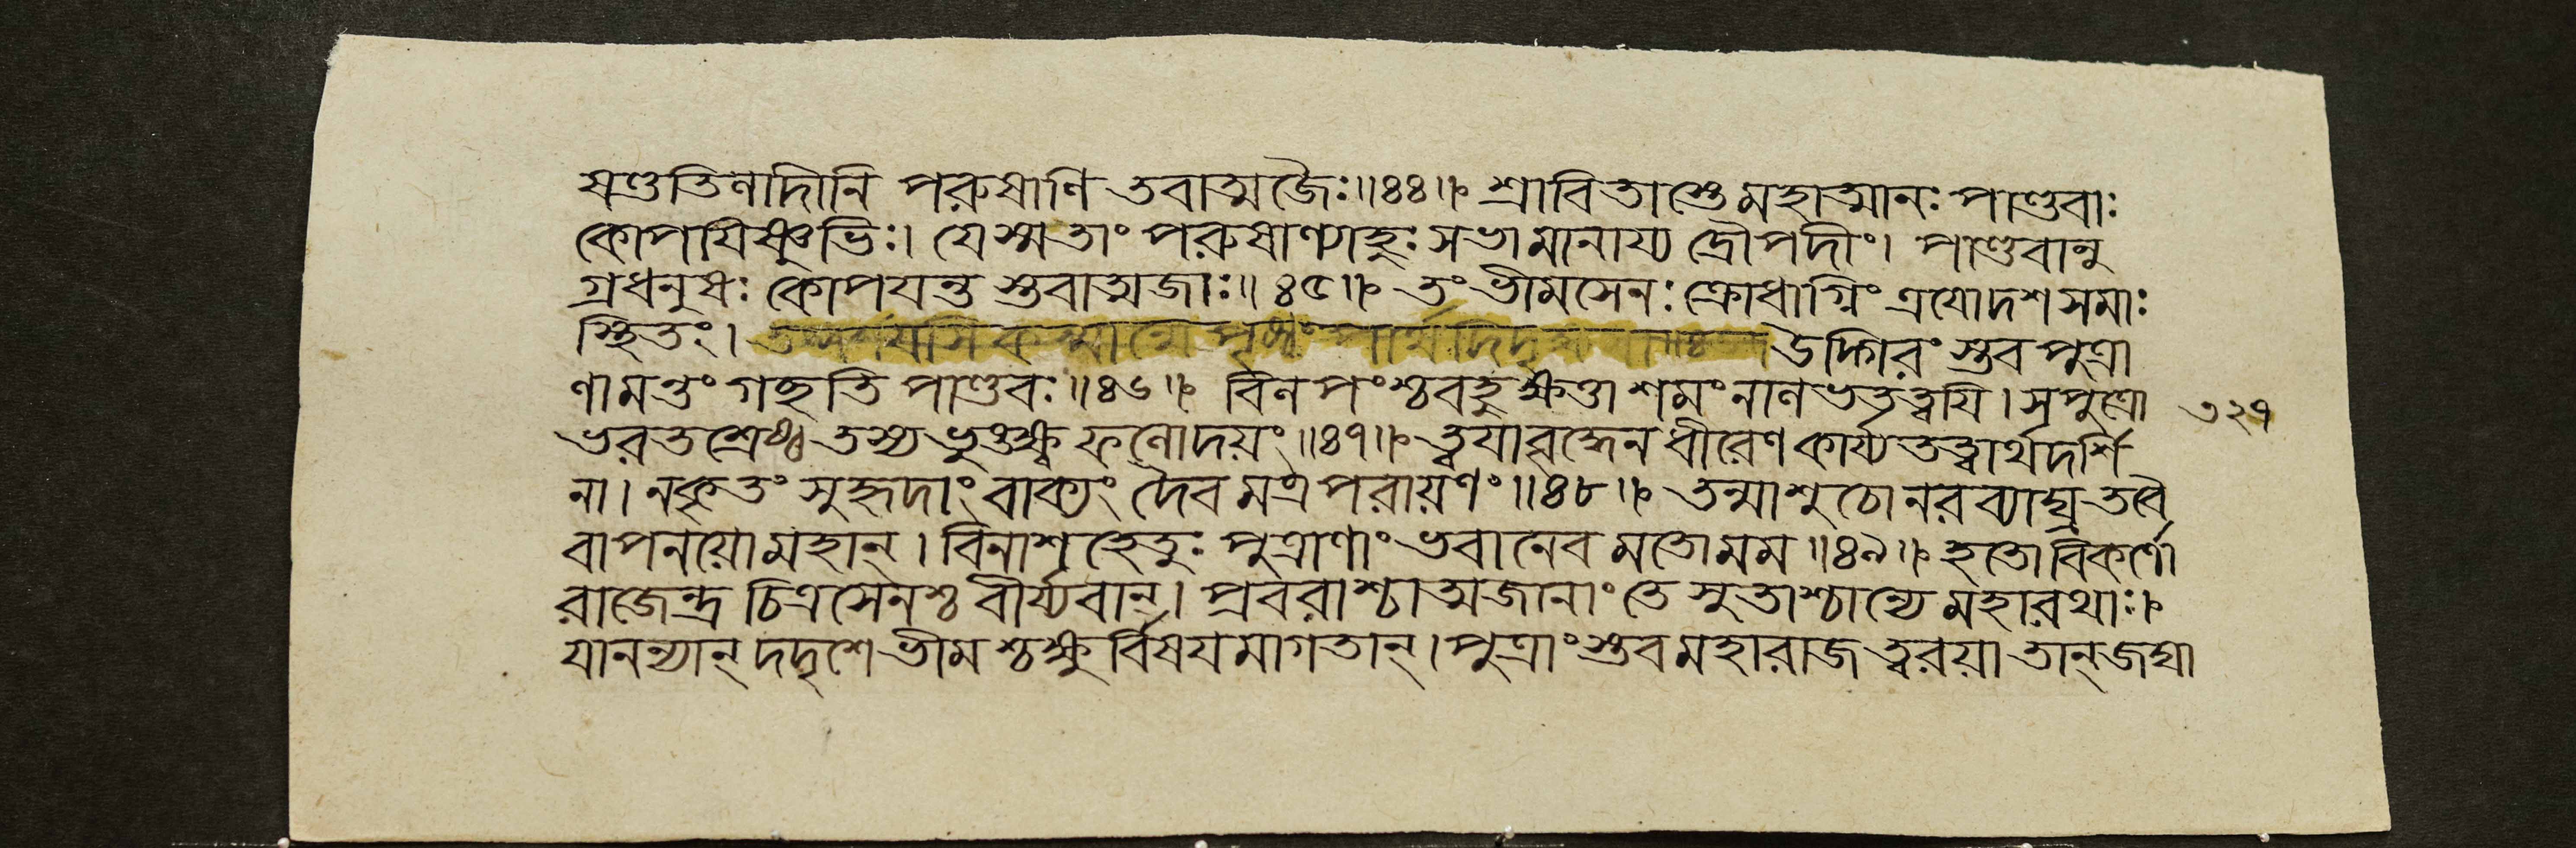 ষণ্ডতিণাদীনি পরুষাণি তবাত্মজৈঃ॥৪৪॥ শ্রাবিতাস্তে মহাত্মানঃ পাণ্ডবাঃ
কোপয়িষ্ণুভিঃ। যেস্মতাং পরুষাণ্যাহুঃ সভামানায্য দ্রৌপদীং। পাণ্ডবানু
গ্রধনুষঃ কোপযন্ত স্তবাত্মজাঃ॥৪৫॥ তং ভীমসেনঃ ক্রোধাগ্নিং ত্রযোদশ সমাঃ
স্থিতং। উদ্গিরং স্তব পুত্রা
ণামন্তং গচ্ছতি পাণ্ডবঃ॥৪৬॥ বিনপংশ্চ বহুক্ষত্তা শমং নানভত্তত্ত্বযি। সপুত্রো ৩২৭
ভরতশ্রেষ্ঠ তস্য ভুঙক্ষ্ব ফলোদয়ং॥৪৭॥ ত্বযাবৃদ্ধেন ধীরেণ কার্য্যতত্ত্বার্থদর্শি
না। নকৃতং সুহৃদাং বাক্যং দৈবমত্র পরায়ণং॥৪৮॥ তন্মাশুচো নরব্যাঘ্র তবৈ
বাপনয়ো মহান্। বিনাশহেতুঃ পুত্রাণাং ভবানেব মতোমম॥৪৯॥ হতো বিকর্ণো
রাজেন্দ্র চিত্রসেনশ্চ বীর্য্যবান্। প্রবরাশ্চাত্মজানাং তে সুতাশ্চান্যে মহারথাঃ।
যানন্যান্ দদৃশে ভীমশ্চক্ষুর্বিষযমাগতান্। পুত্রাংস্তব মহারাজ ত্বরয়া তান্ জঘা